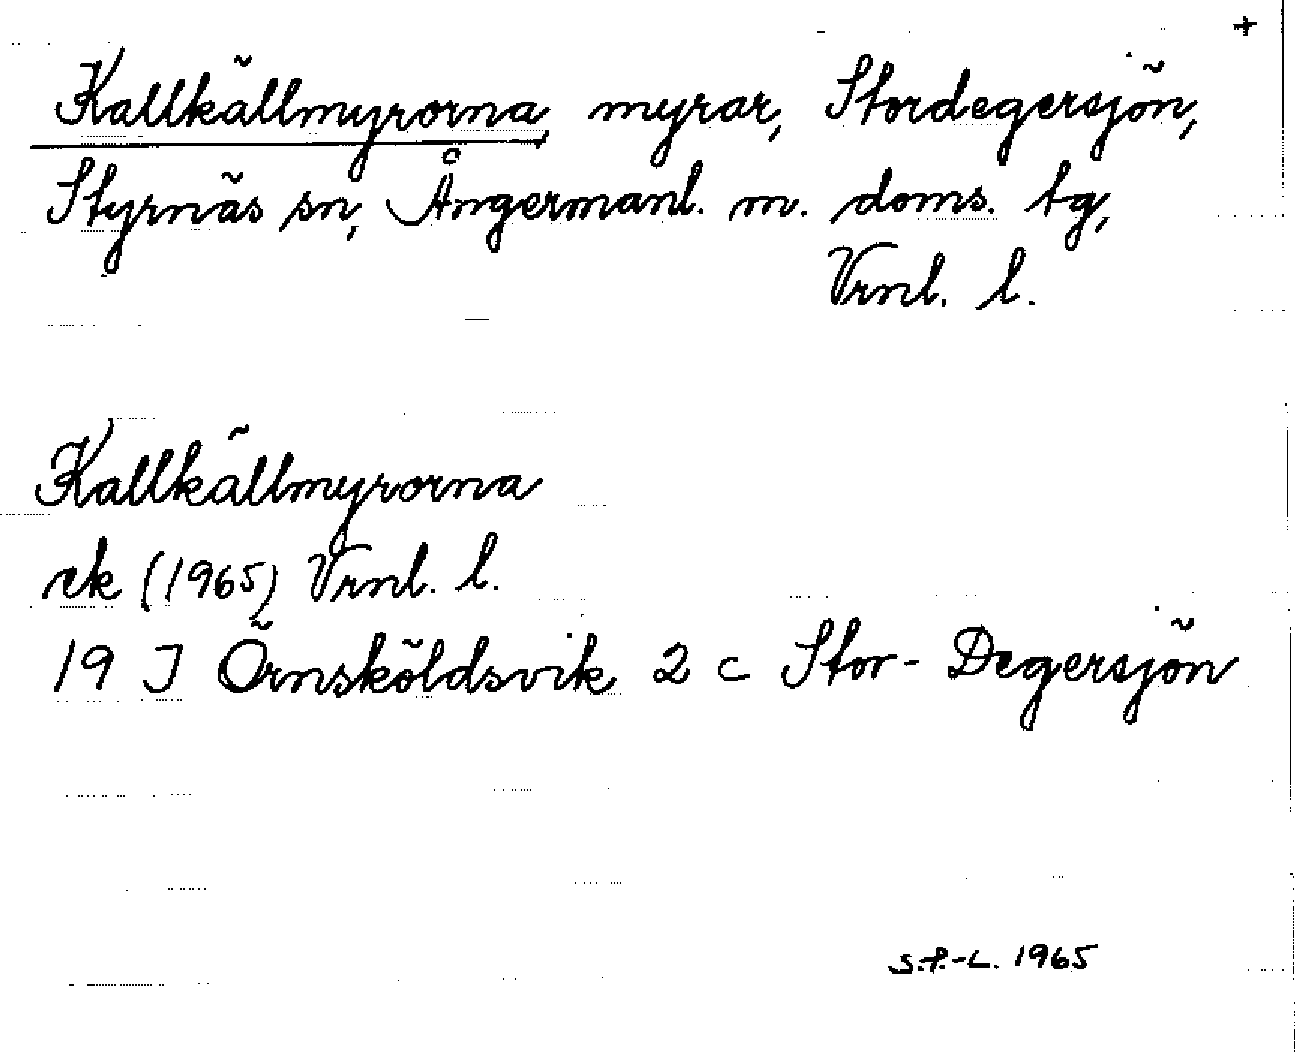 +
Kallkällmyrorna, myrar, Stordegersjön,
Styrnäs sn, Ångermanl. m. doms. tg,
Vrnl. l.
Kallkällmyrorna
ek (1965) Vrnl. l.
19 J Örnsköldsvik 2 c Stor-Degersjön
S.P.-L. 1965